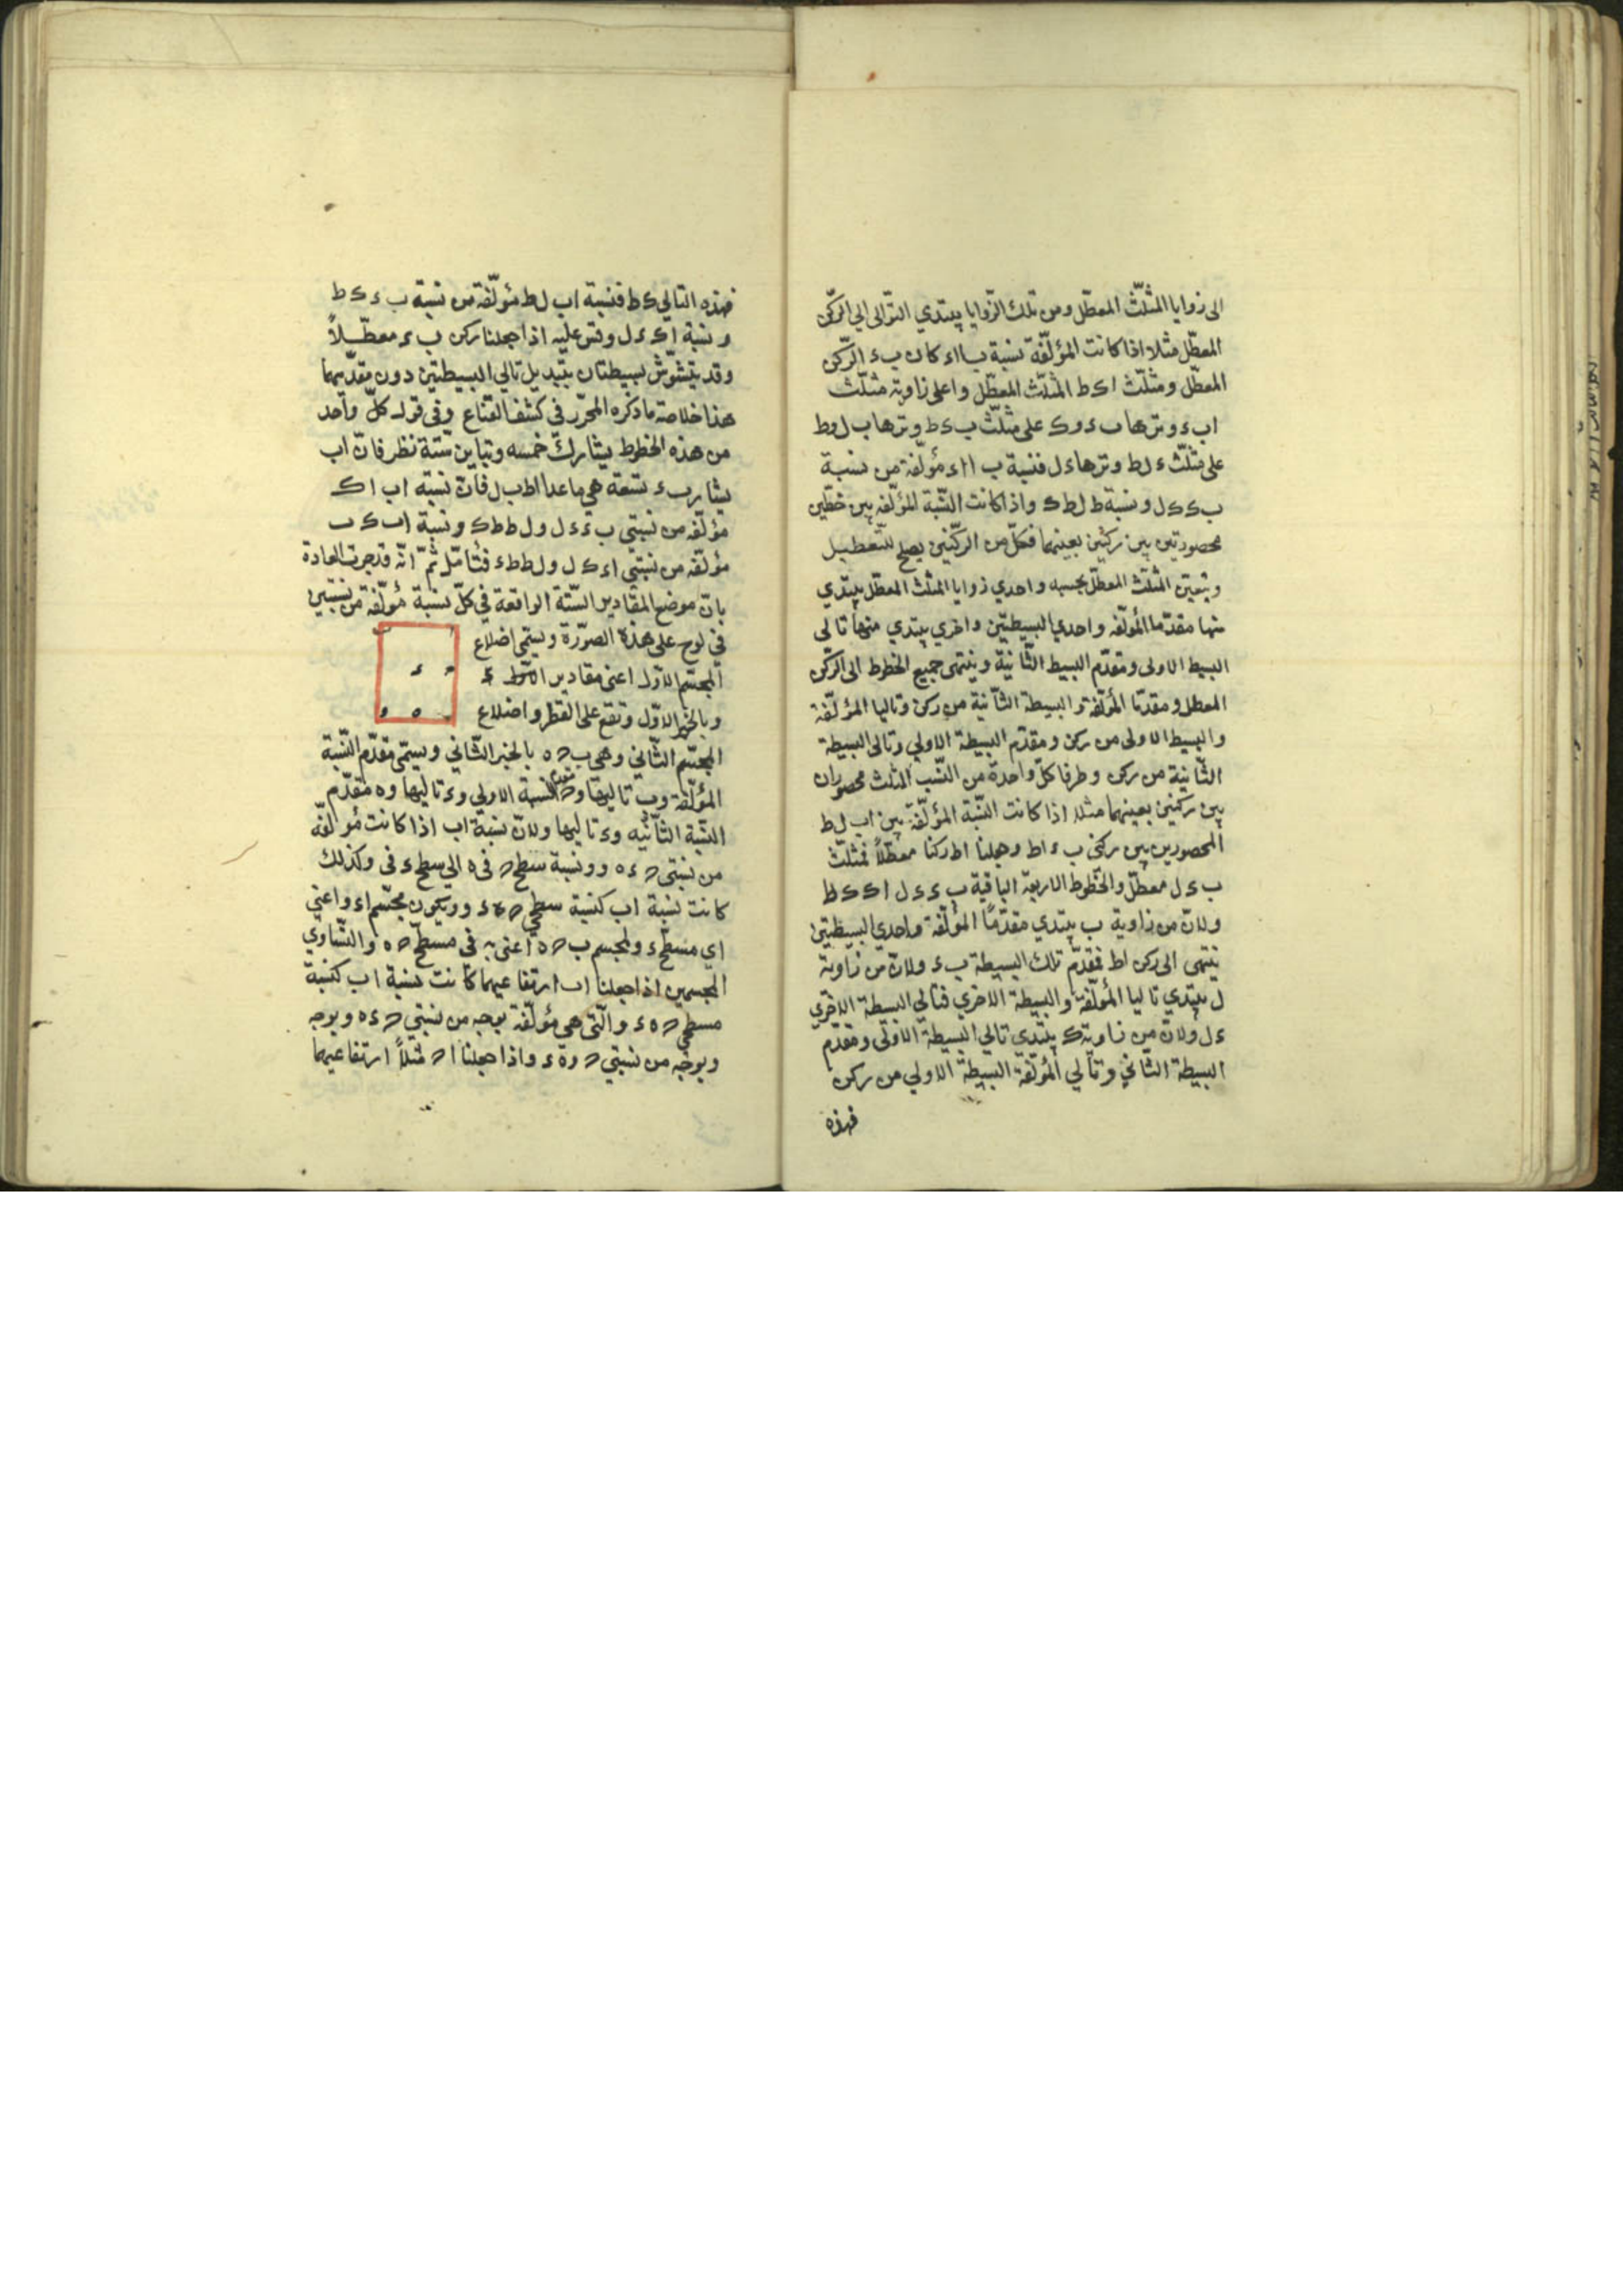 الى زوايا المثلّث المعطّل ومن تلك الزّوايا يبتدي التوالى الي الركن
المعطّل مثلا اذا كانت المؤلّفة نسبة ب ا اء كان ب ء الرّكن
المعطّل ومثلّث ا ك ط المثلّث المعطّل و اعلى زاوية مثلّث
اب ء وترها ب ء و ك على مثلّث ب ك ط وترها ب ل وط
على مثلّث ء ل ط وترها ء ل فنسبة ب ا اء مؤلّفة من نسبة
ب ك ك ل ونسبة ط ل ط ك واذا كانت النّسبة المؤلّفه بين خطّين
محصورتين بين ركنين بعينهما فكلّ من الركنين يصلح للتّعطيل
ويتعيّن المثلّث المعطّل بحسبه واحدي زوايا المثلث المعطّل يبتدي
منها مقدّما المؤلّفه واحدي البسيطتين واخري يبتدي منها تالى
البسيط الاولى ومقدّم البسيط الثّانية وينتهى جميع الخطوط الى الركن
المعطل ومقدّما المؤلّفة والبسيطة الثّانية من ركن وتاليا المؤلّفة
والبسيط الاولى من ركن ومقدّم البسيطة الاولي وتالى البسيطة
الثّانية من ركن وطرفا كلّ واحدة من النّسب المثلث محصوران
بين ركنين بعينهما مثلا اذا كانت النّسبة المؤلّفة بين اب ل ط
المحصورين بين ركني ب ء اط وجعلنا اط ركنا معطّلاً فمثلّث
ب ء ل معطّل والخطوط الاربعة الباقية ب ء ء ل ا ك ك ط
ولانّ من زاوية ب يبتدي مقدّمًا المؤلّفة واحدي البسيطتين
ينتهى الى ركن اط فمقدّم تلك البسيطة ب ء ولانّ من زاوية
ل يبتدي تاليا المؤلّفة والبسيطة الاخري فتالي البسيطة الاخري
ء ل ولانّ من زاوية ك يبتدي تالي البسيطة الاولى ومقدّم
البسيطة الثّاني وتالي المؤلّفة البسيطة الاولي من ركن
فهذه
فهذه التالي ك ط فنسبة اب ل ط مؤلّفة من نسبة ب ء ك ط
ونسبة ا ك ء ل وقس عليه اذا جعلنا ركن ب ء معطّلاً
وقد يتشوّش بسيطتان بتبديل تالي البسيطتين دون مقدّميهما
هذا خلاصة ما ذكره المحرّر في كشف القناع وفي قوله كلّ واحد
من هذه الخطوط يشارك خمسه ويباين ستّة نظر فانّ اب
يشارب ء تسعة هي ما عدا اط ب ل فانّ نسبة اب ا ك
مؤلّفه من نسبتي ب ء ء ل و ل ط ط ك ونسبة اب ك ب
مؤلّفه من نسبتي اء ء ل و ل ط ط ء فتأمّل ثمّ انّه قد جرت العادة
بانّ موضع المقادير الستّة الواقعة في كلّ نسبة مؤلّفة من نسبتين
في لوح على هذه الصوّرة ويسمّى اضلاع
المجسّم الاوّل اعنى مقادير ا و ء
وبالخبر الاوّل وتقع على القطر واضلاع
المجسّم الثّاني وهي ب ح ه بالخبر الثّاني ويسمّى مقدّم النّسبة
المؤلّفة وب تاليها وح مقدّم النسبة الاولى وء تاليها وه مقدّم
النّسبة الثّانيه وء تاليها ولانّ نسبة اب اذا كانت مؤلفه
من نسبتى ح ء ه و ونسبة سطح ح في ه الى سطح ء في وكذلك
كانت نسبة اب كنسبة سطحي ح ه ء و ويكون مجسّم اء و اعني
اي مسطّح ء و لمجسم ب ح ه اعنى به في مسطّح ح ه والتّساوي
المجسمين اذا جعلنا اب ارتفاعيهما كانت نسبة اب كنسبة
مسطحي ح ه ء و الّتى هى مؤلّفة بوجه من نسبتي ح ء ه وبوجه
وبوجه من نسبتي ح و ه ء واذا جعلنا ا ح مثلاً ارتفاعيهما